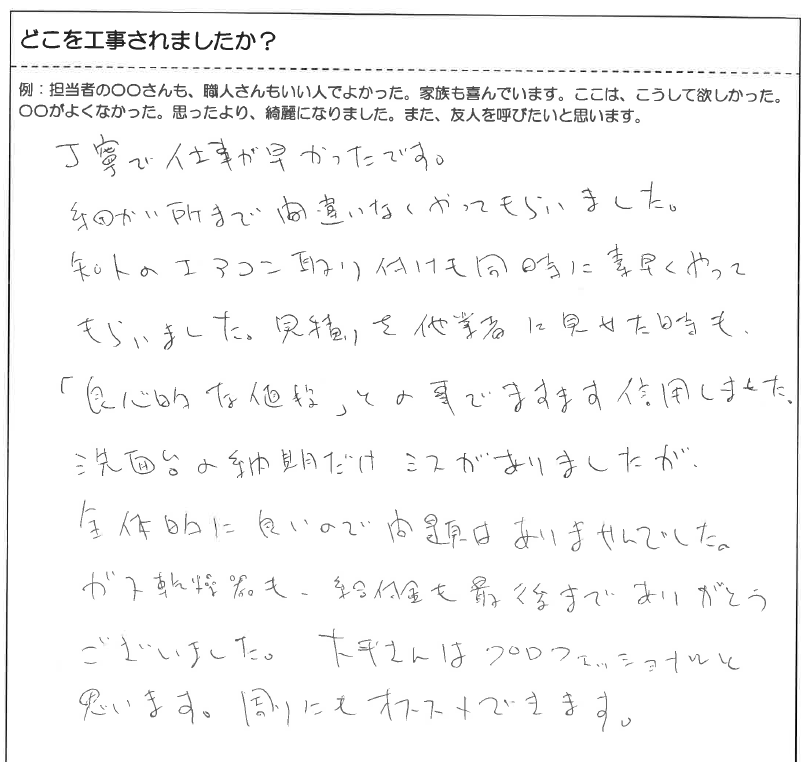 どこを工事されましたか？
例：担当者の〇〇さんも、職人さんもいい人でよかった。家族も喜んでいます。ここは、こうして欲しかった。
〇〇がよくなかった。思ったより、綺麗になりました。また、友人を呼びたいと思います。
丁寧で仕事が早かったです。
細かい所まで間違いなくやってもらいました。
知人のエアコン取り付けも同時に素早くやって
もらいました。見積りを他業者に見せた時も、
「良心的な値段」との事でますます信用しました。
洗面台の納期だけミスがありましたが、
全体的に良いので問題はありませんでした。
ガス乾燥器も、給付金も最後までありがとう
ございました。大平さんはプロフェッショナルと
思います。周りにもオススメできます。